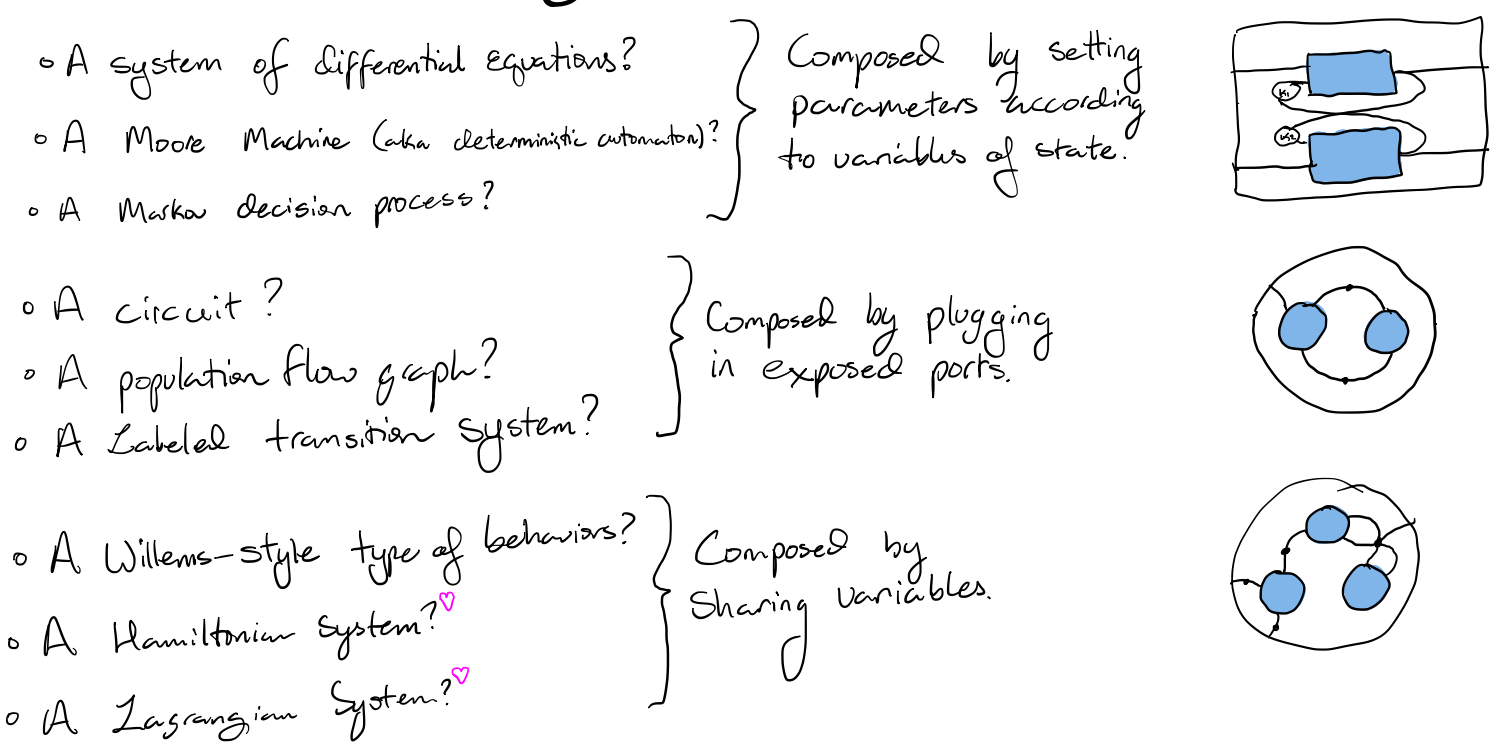 ◦ A system of differential equations?
◦ A Moore Machine (aka deterministic automaton)?
◦ A Markov decision process?
Composed by setting
parameters according
to variables of state.
K₁
K₂
◦ A circuit?
◦ A population flow graph?
◦ A Labeled transition system?
Composed by plugging
in exposed ports.
◦ A Willems-style type of behaviors?
◦ A Hamiltonian System?♡
◦ A Lagrangian System?♡
Composed by
Sharing variables.